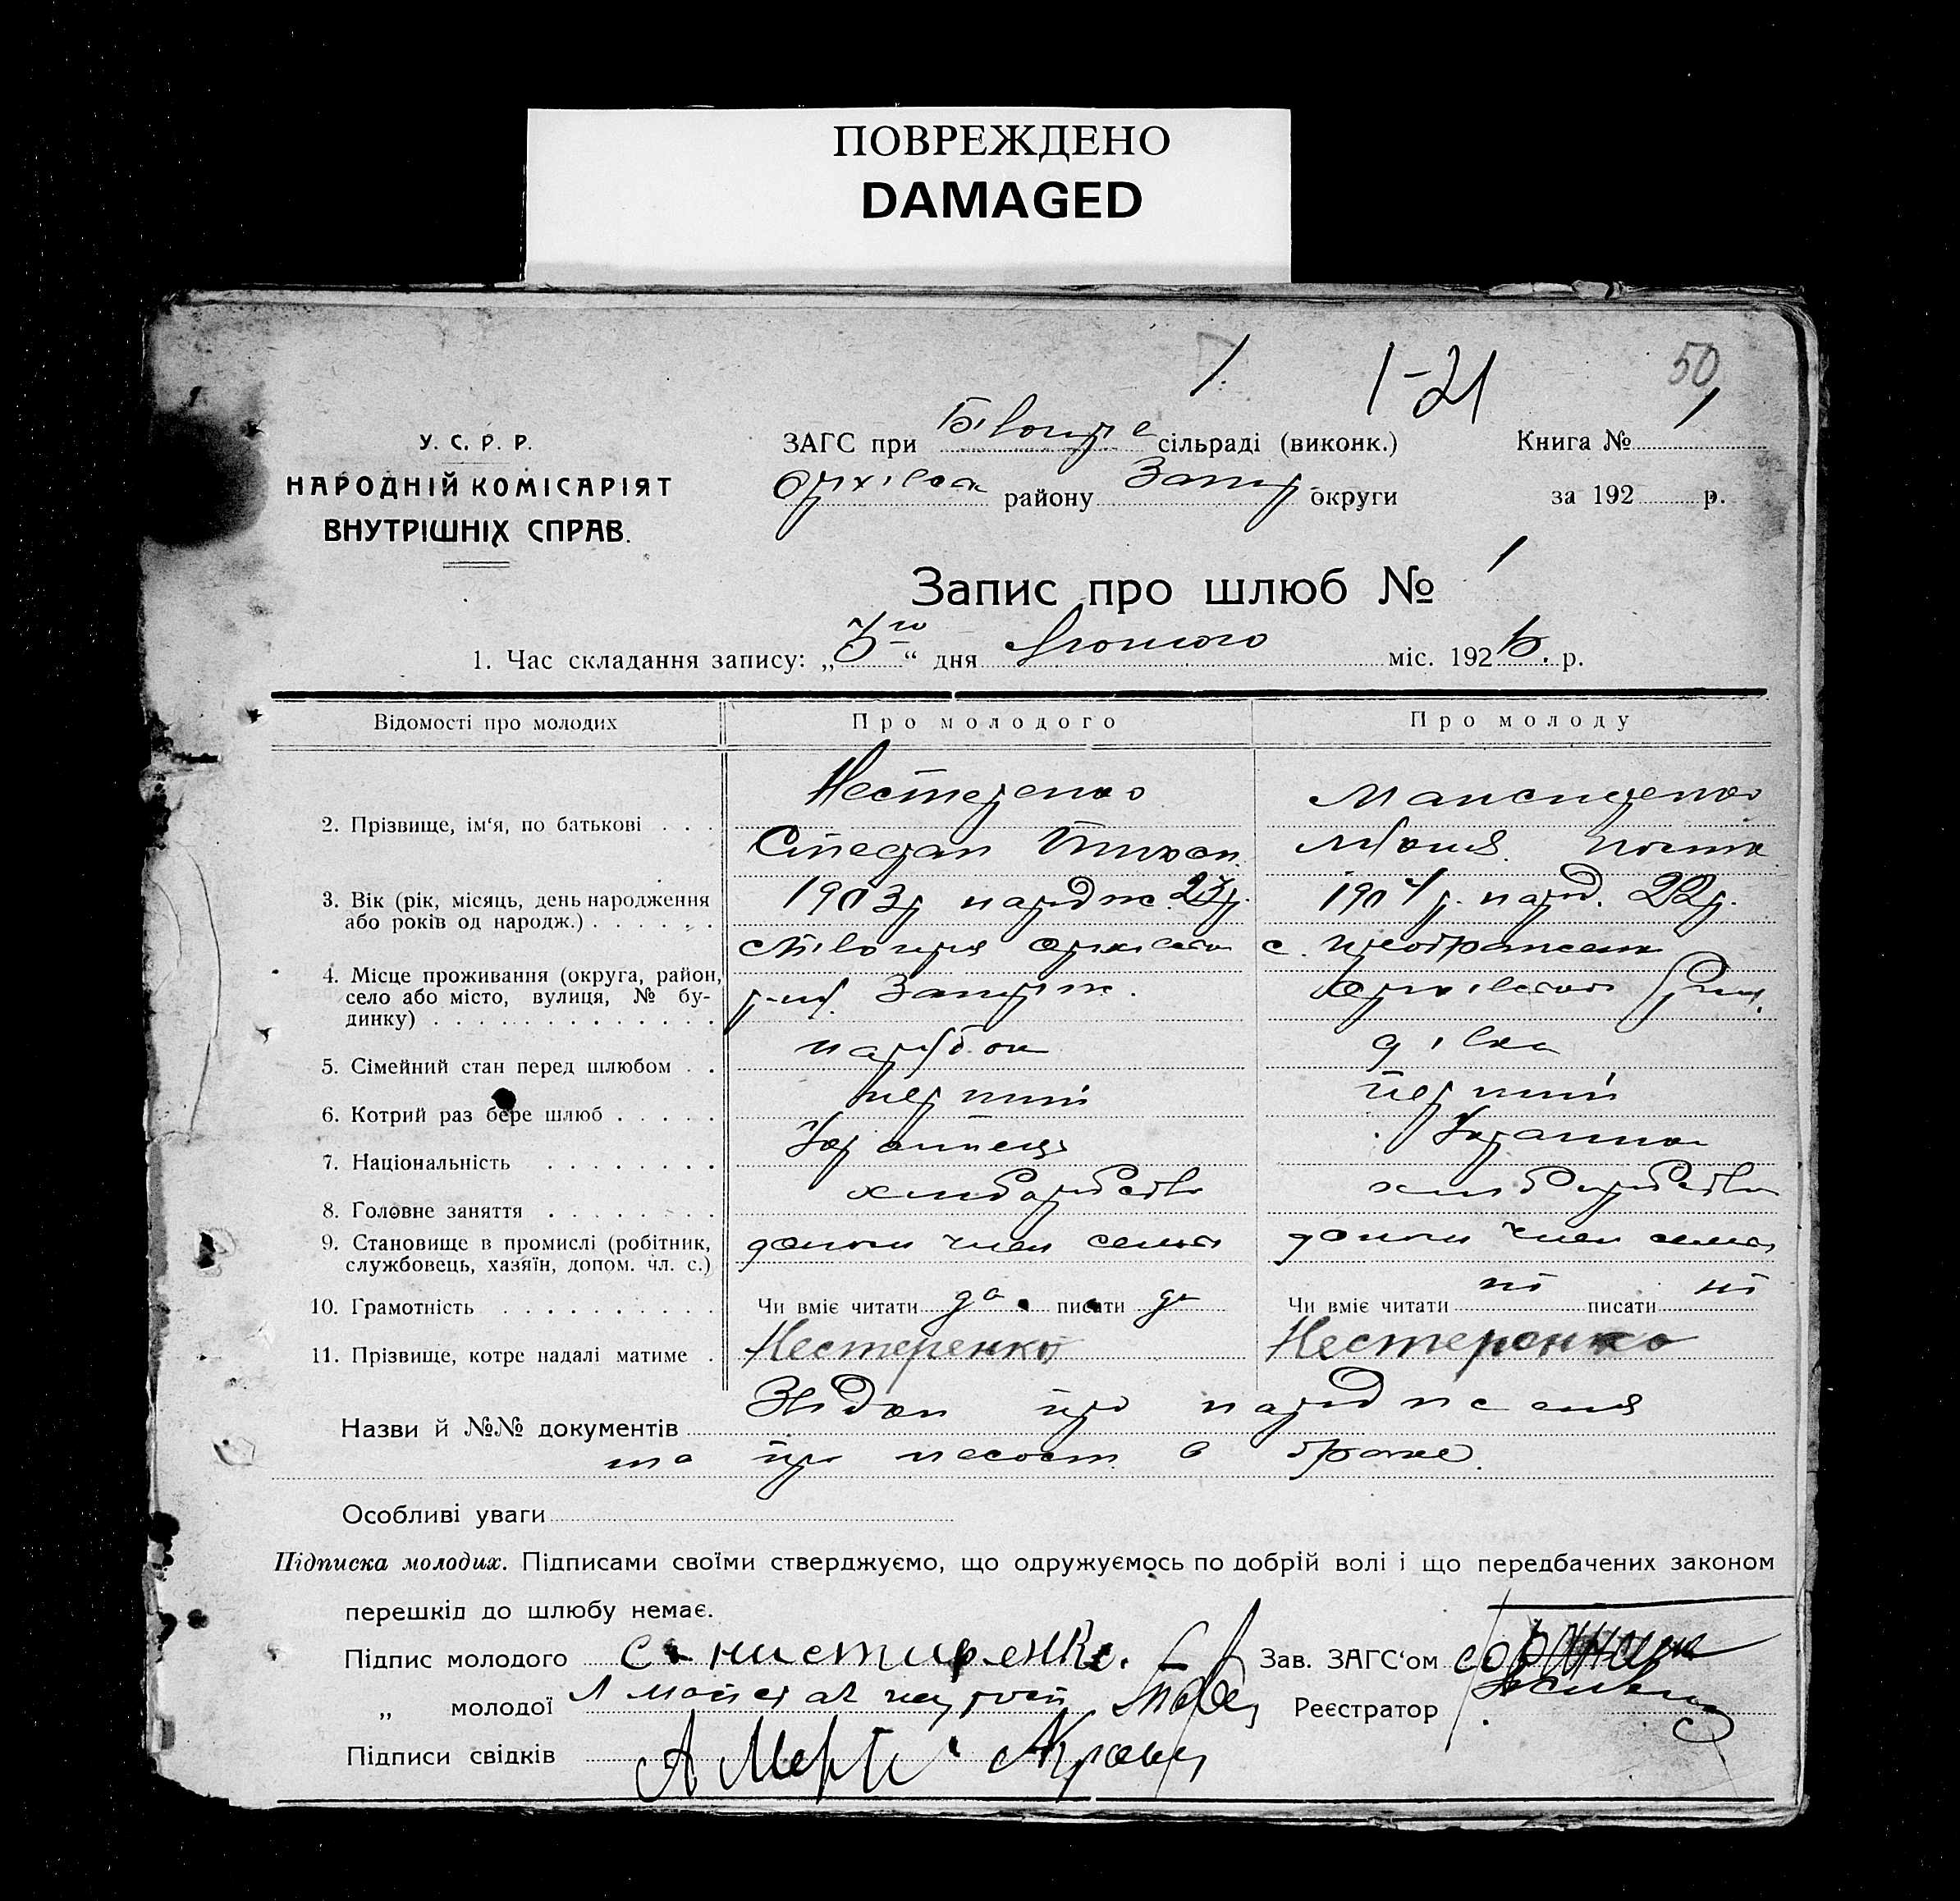 ПОВРЕЖДЕНО
DAMAGED
1. 1-21 50
У. С. Р. Р.
НАРОДНІЙ КОМІСАРІЯТ
ВНУТРІШНІХ СПРАВ.
ЗАГС при сільраді (виконк.) Книга № 1
району Запор округи за 192 р.
Запис про шлюб № 1
1. Час складання запису: „ “ дня Лютого міс. 1926. р.
Відомості про молодих Про молодого Про молоду
2. Прізвище, ім'я, по батькові . . .
Нестеренко
Степан Тихон.
3. Вік (рік, місяць, день народження
або років од народж.) . . . . . .
1903р народж. 23р. 1904р. народ. 22р.
4. Місце проживання (округа, район,
село або місто, вулиця, № бу-
динку) . . . . . . . . . . . . .
р-ну Запоріж.
с. Преображенка
5. Сімейний стан перед шлюбом . . парубок дівка
6. Котрий раз бере шлюб . . . . . перший перший
7. Національність . . . . . . . . Українець Українка
8. Головне заняття . . . . . . . . хліборобство хліборобство
9. Становище в промислі (робітник,
службовець, хазяїн, допом. чл. с.)
допом член семьи допом член семьи
10. Грамотність . . . . . . . . . . . Чи вміє читати да писати да Чи вміє читати ні писати ні
11. Прізвище, котре надалі матиме . Нестеренко Нестеренко
Назви й №№ документів про народження
та про в браке.
Особливі уваги
Підписка молодих. Підписами своїми стверджуємо, що одружуємось по добрій волі і що передбачених законом
перешкід до шлюбу немає.
Підпис молодого С. нистиренко. Зав. ЗАГС'ом
„ молодої Реєстратор
Підписи свідків